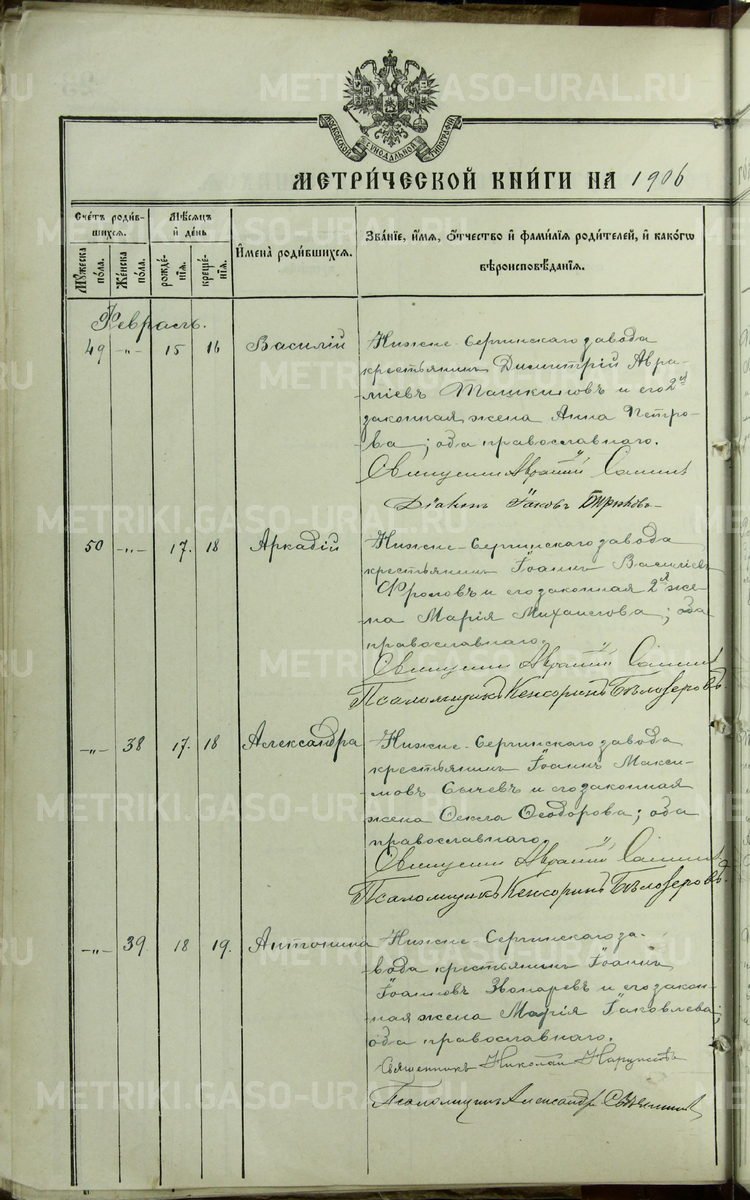 METRIKI.GASO-URAL.RU
МОСКОВСКОЙ СѴНОДАЛЬНОЙ ТИПОГРАФІИ
МЕТРИ́ЧЕСКОЙ КНИ́ГИ НА 1906
Сче́тъ роди́в-
шихся.
Мѣ́сяцъ
и҆ де́нь
И҆мена̀ роди́вшихся.
Зва́нїе, и҆́мя, ѻ҆́тчество и҆ фами́лїя роди́телей, и҆ како́гѡ
вѣроисповѣ́данїя.
Мꙋ́жеска по́ла.
Же́нска по́ла.
рожде́нїя.
креще́нїя.
Февраль.
49 -„- 15 16 Василій Нижне-Сергинскаго завода
крестьянинъ Димитрій Авра-
міевъ и его 2ая
законная жена Анна Петро-
ва; оба православнаго.
Священникъ Аврамій
Діаконъ Іаковъ Бирюковъ
50 -„- 17. 18 Аркадій Нижне-Сергинскаго завода
крестьянинъ Іоаннъ Василіевъ
Фроловъ и его законная 2я же-
на Марія Михаилова; оба
православнаго.
Священникъ Аврамій
Псаломщикъ Кенсоринъ Бѣлозеровъ
-„- 38 17. 18 Александра Нижне-Сергинскаго завода
крестьянинъ Іоаннъ Макси-
мовъ Сычевъ и его законная
жена Ѳекла Ѳеодорова; оба
православнаго.
Священникъ Аврамій
Псаломщикъ Кенсоринъ Бѣлозеровъ.
-„- 39. 18 19. Антонина Нижне-Сергинскаго за-
вода крестьянинъ Іоаннъ
Іоанновъ Звонаревъ и его закон-
ная жена Марія Іаковлева;
оба православнаго.
Священникъ Николай
Псаломщикъ Александръ